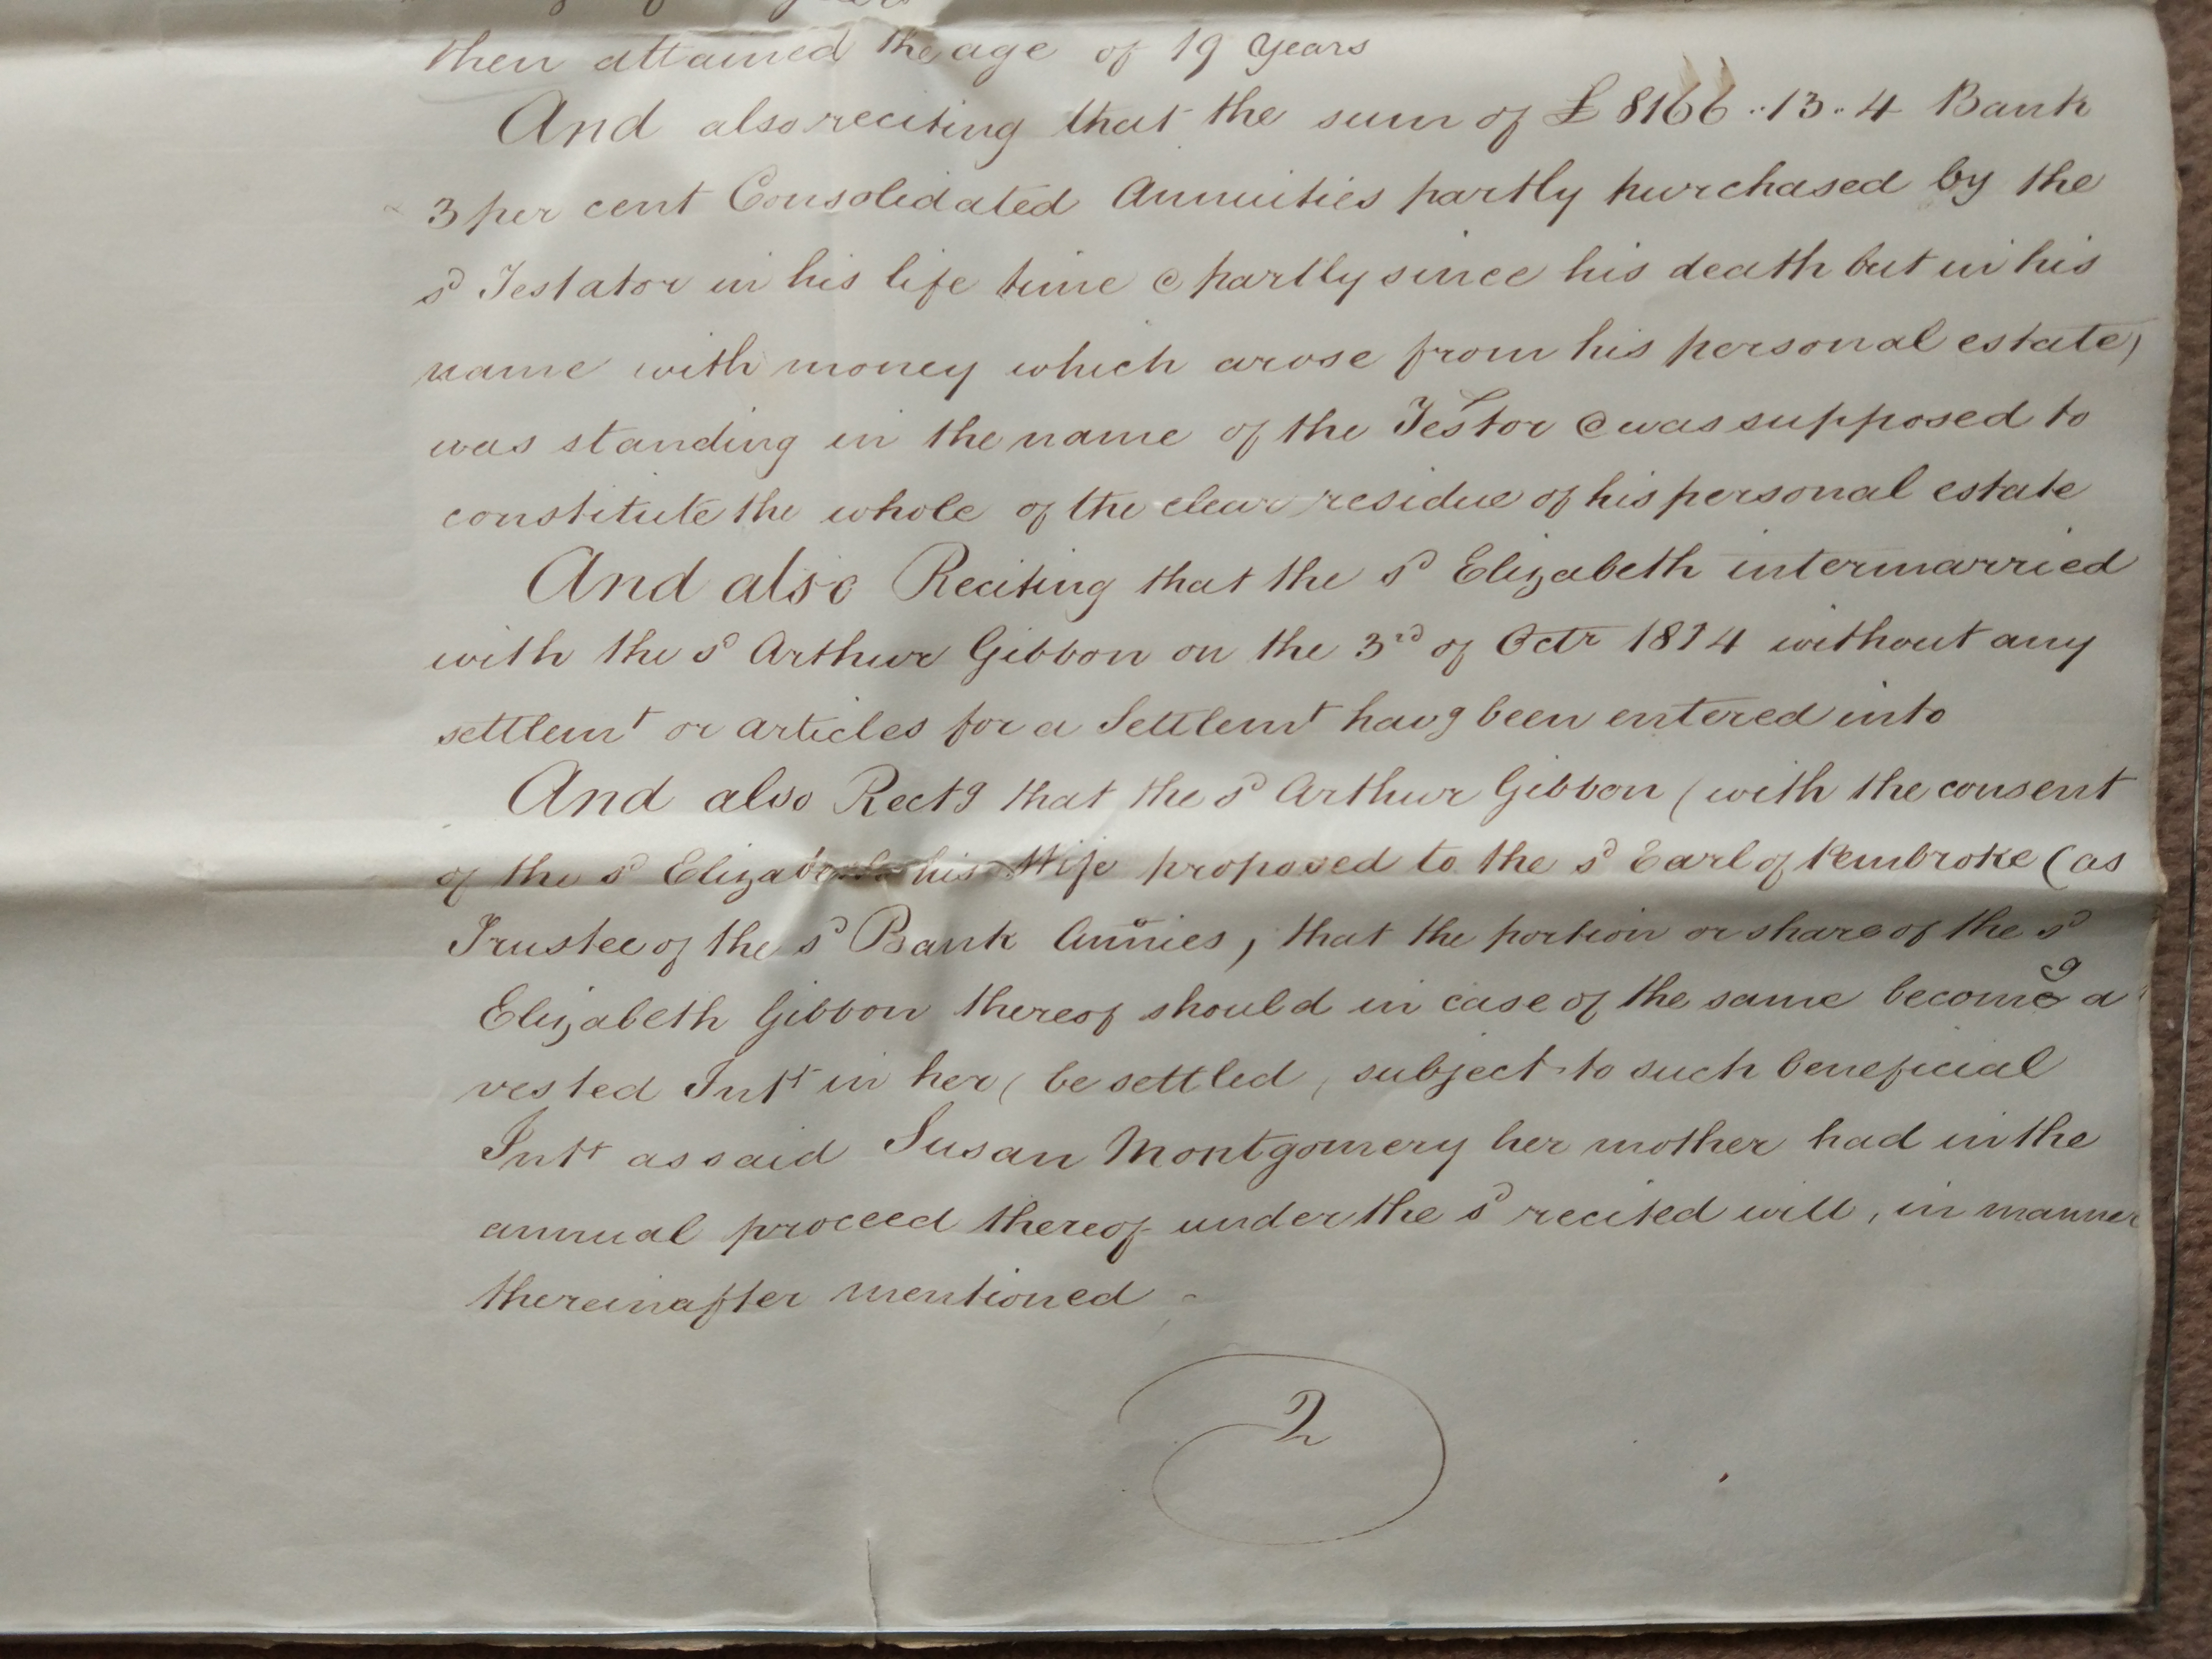 then attained the age of 19 years
And also reciting that the sum of £8166..13..4 Bank
3 per cent Consolidated Annuities partly purchased by the
sd Testator in his life time & partly since his death but in his
name with money which arose from his personal estate)
was standing in the name of the Testor & was supposed to
constitute the whole of the clear residue of his personal estate
And also Reciting that the sd Elizabeth intermarried
with the sd Arthur Gibbon on the 3rd of Octr 1814 without any
settlemt or articles for a Settlemt havg been entered into
And also Rectg that the sd Arthur Gibbon (with the consent
of the sd Elizabeth his Wife proposed to the sd Earl of Pembroke (as
Trustee of the sd Bank Annies) that the portion or share of the sd
Elizabeth Gibbon thereof should in case of the same becomg a
vested Intt in her (be settled, subject to such beneficial
Intt as said Susan Montgomery her mother had in the
annual proceed thereof under the sd recited will, in manner
thereinafter mentioned
2